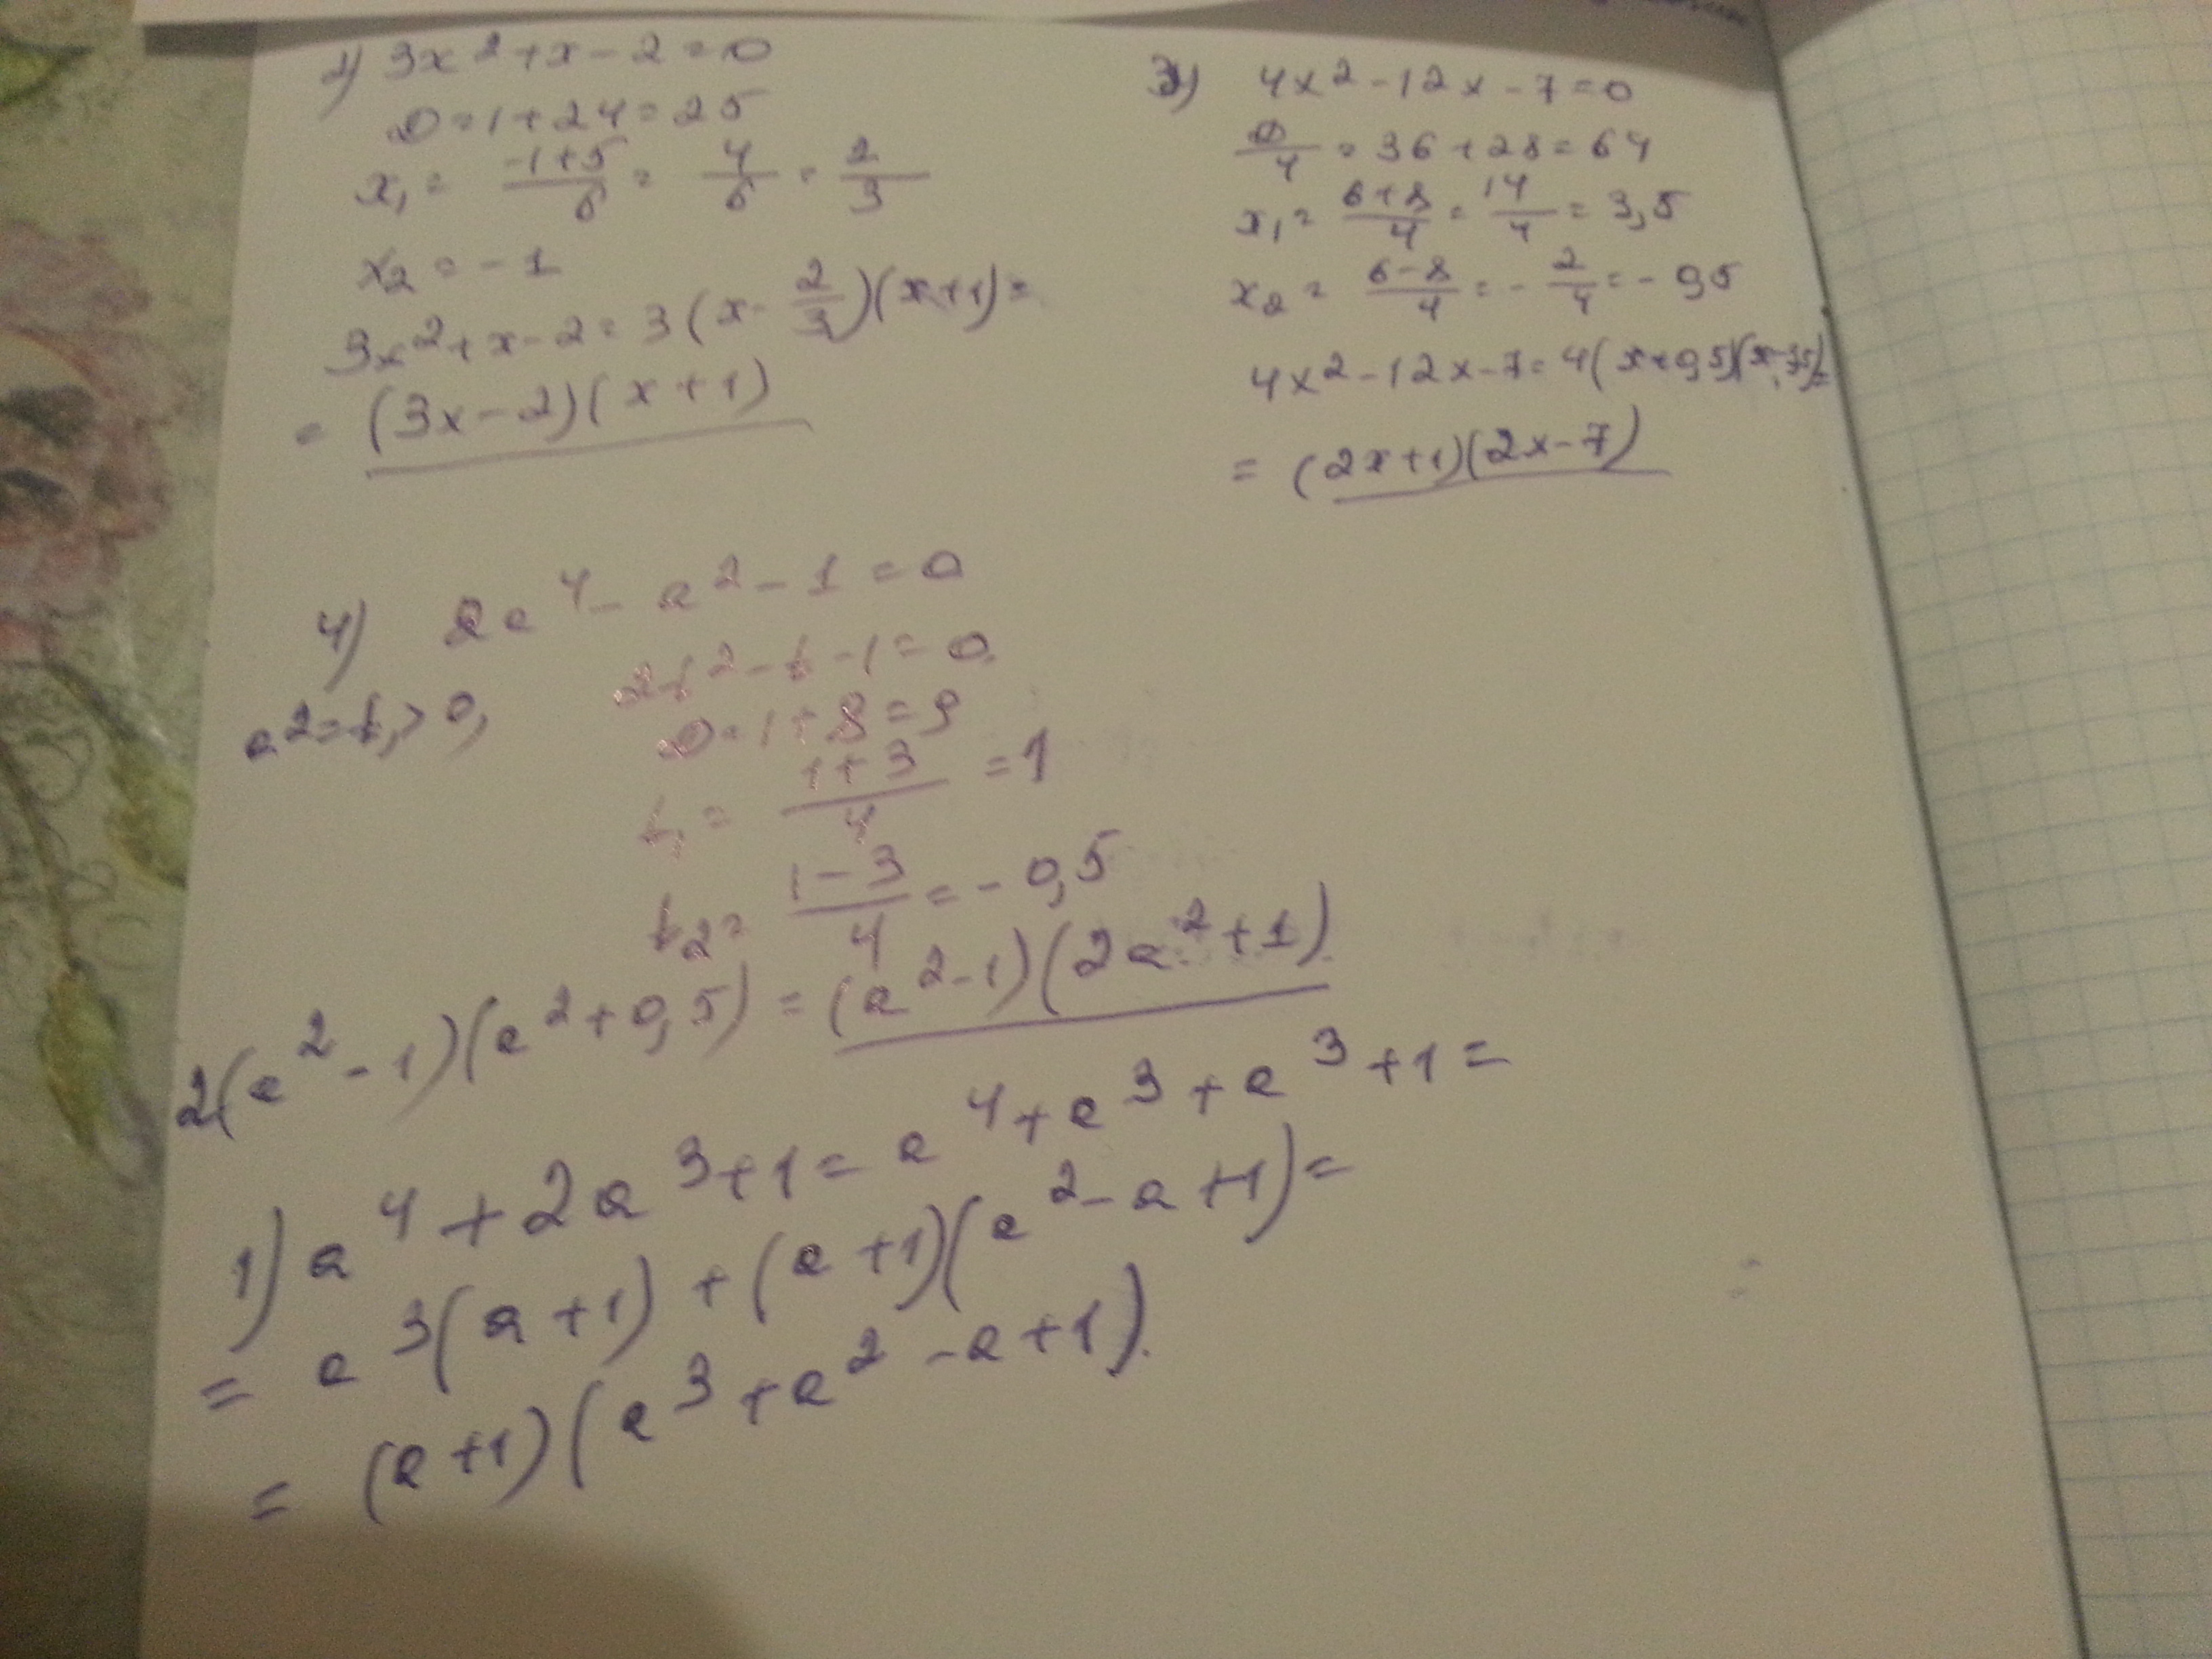 2) 3x² + x - 2 = 0
D = 1 + 24 = 25
x₁ = (-1+5)/6 = 4/6 = 2/3
x₂ = -1
3x² + x - 2 = 3(x - 2/3)(x+1) =
= (3x - 2)(x + 1)
3) 4x² - 12x - 7 = 0
D/4 = 36 + 28 = 64
x₁ = (6+8)/4 = 14/4 = 3,5
x₂ = (6-8)/4 = - 2/4 = - 0,5
4x² - 12x - 7 = 4(x + 0,5)(x - 3,5) =
= (2x + 1)(2x - 7)
4) 2a⁴ - a² - 1 = 0
a² = t, > 0,
2t² - t - 1 = 0.
D = 1 + 8 = 9
t₁ = (1+3)/4 = 1
t₂ = (1-3)/4 = - 0,5
2(a² - 1)(a² + 0,5) = (a² - 1)(2a² + 1).
1) a⁴ + 2a³ + 1 = a⁴ + a³ + a³ + 1 =
= a³(a + 1) + (a + 1)(a² - a + 1) =
= (a + 1)(a³ + a² - a + 1).